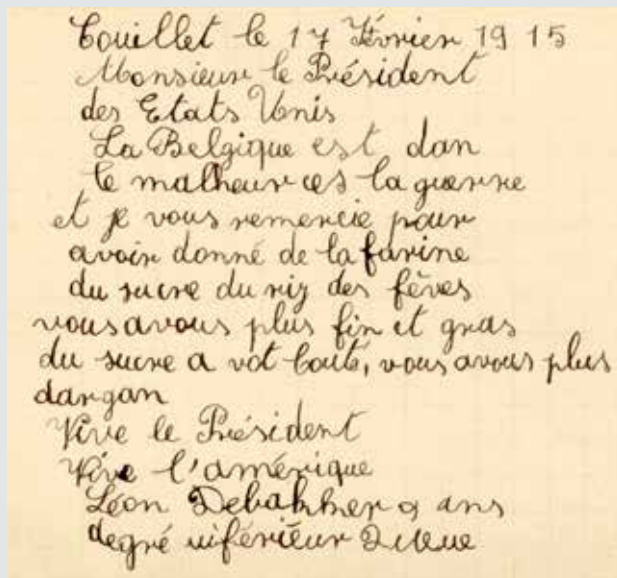 Couillet le 17 Février 1915
Monsieur le Président
des Etats Unis
La Belgique est dan
le malheur ces la guerre
et je vous remercie pour
avoir donné de la farine
du sucre du riz des fêves
vousavous plus fin et gras
du sucre a vot bouts, vous avous plus
dargan
Vive le Président
Vive l'amérique
Léon 9 ans
degré inférieur